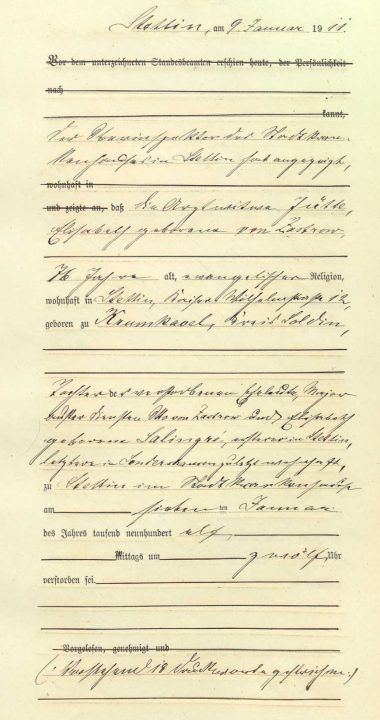 Stettin, am 9. Januar 1911.
Vor dem unterzeichneten Standesbeamten erschien heute, der Persönlichkeit
nach
kannt,
Der Oberinspektor des Stadtkran-
kenhauses in Stettin hat angezeigt,
wohnhaft in
und zeigte an, daß die Arztwitwe Jütte,
Elisabeth geborene von Zastrow,
76 Jahre alt, evangelischer Religion,
wohnhaft in Stettin, Kaiser Wilhelmstraße 12,
geboren zu Krumkavel, Kreis Soldin,
Tochter der verstorbenen Eheleute, Major
außer Diensten Otto von Zastrow und Elisabeth
geborene Salingre, ersterer in Stettin,
letztere in zuletzt wohnhaft,
zu Stettin im Stadtkrankenhause
am sieben ten Januar
des Jahres tausend neunhundert elf
Mittags um zwölf Uhr
verstorben sei
Vorgelesen, genehmigt und
(Vorstehend 18 Druckworte gestrichen.)